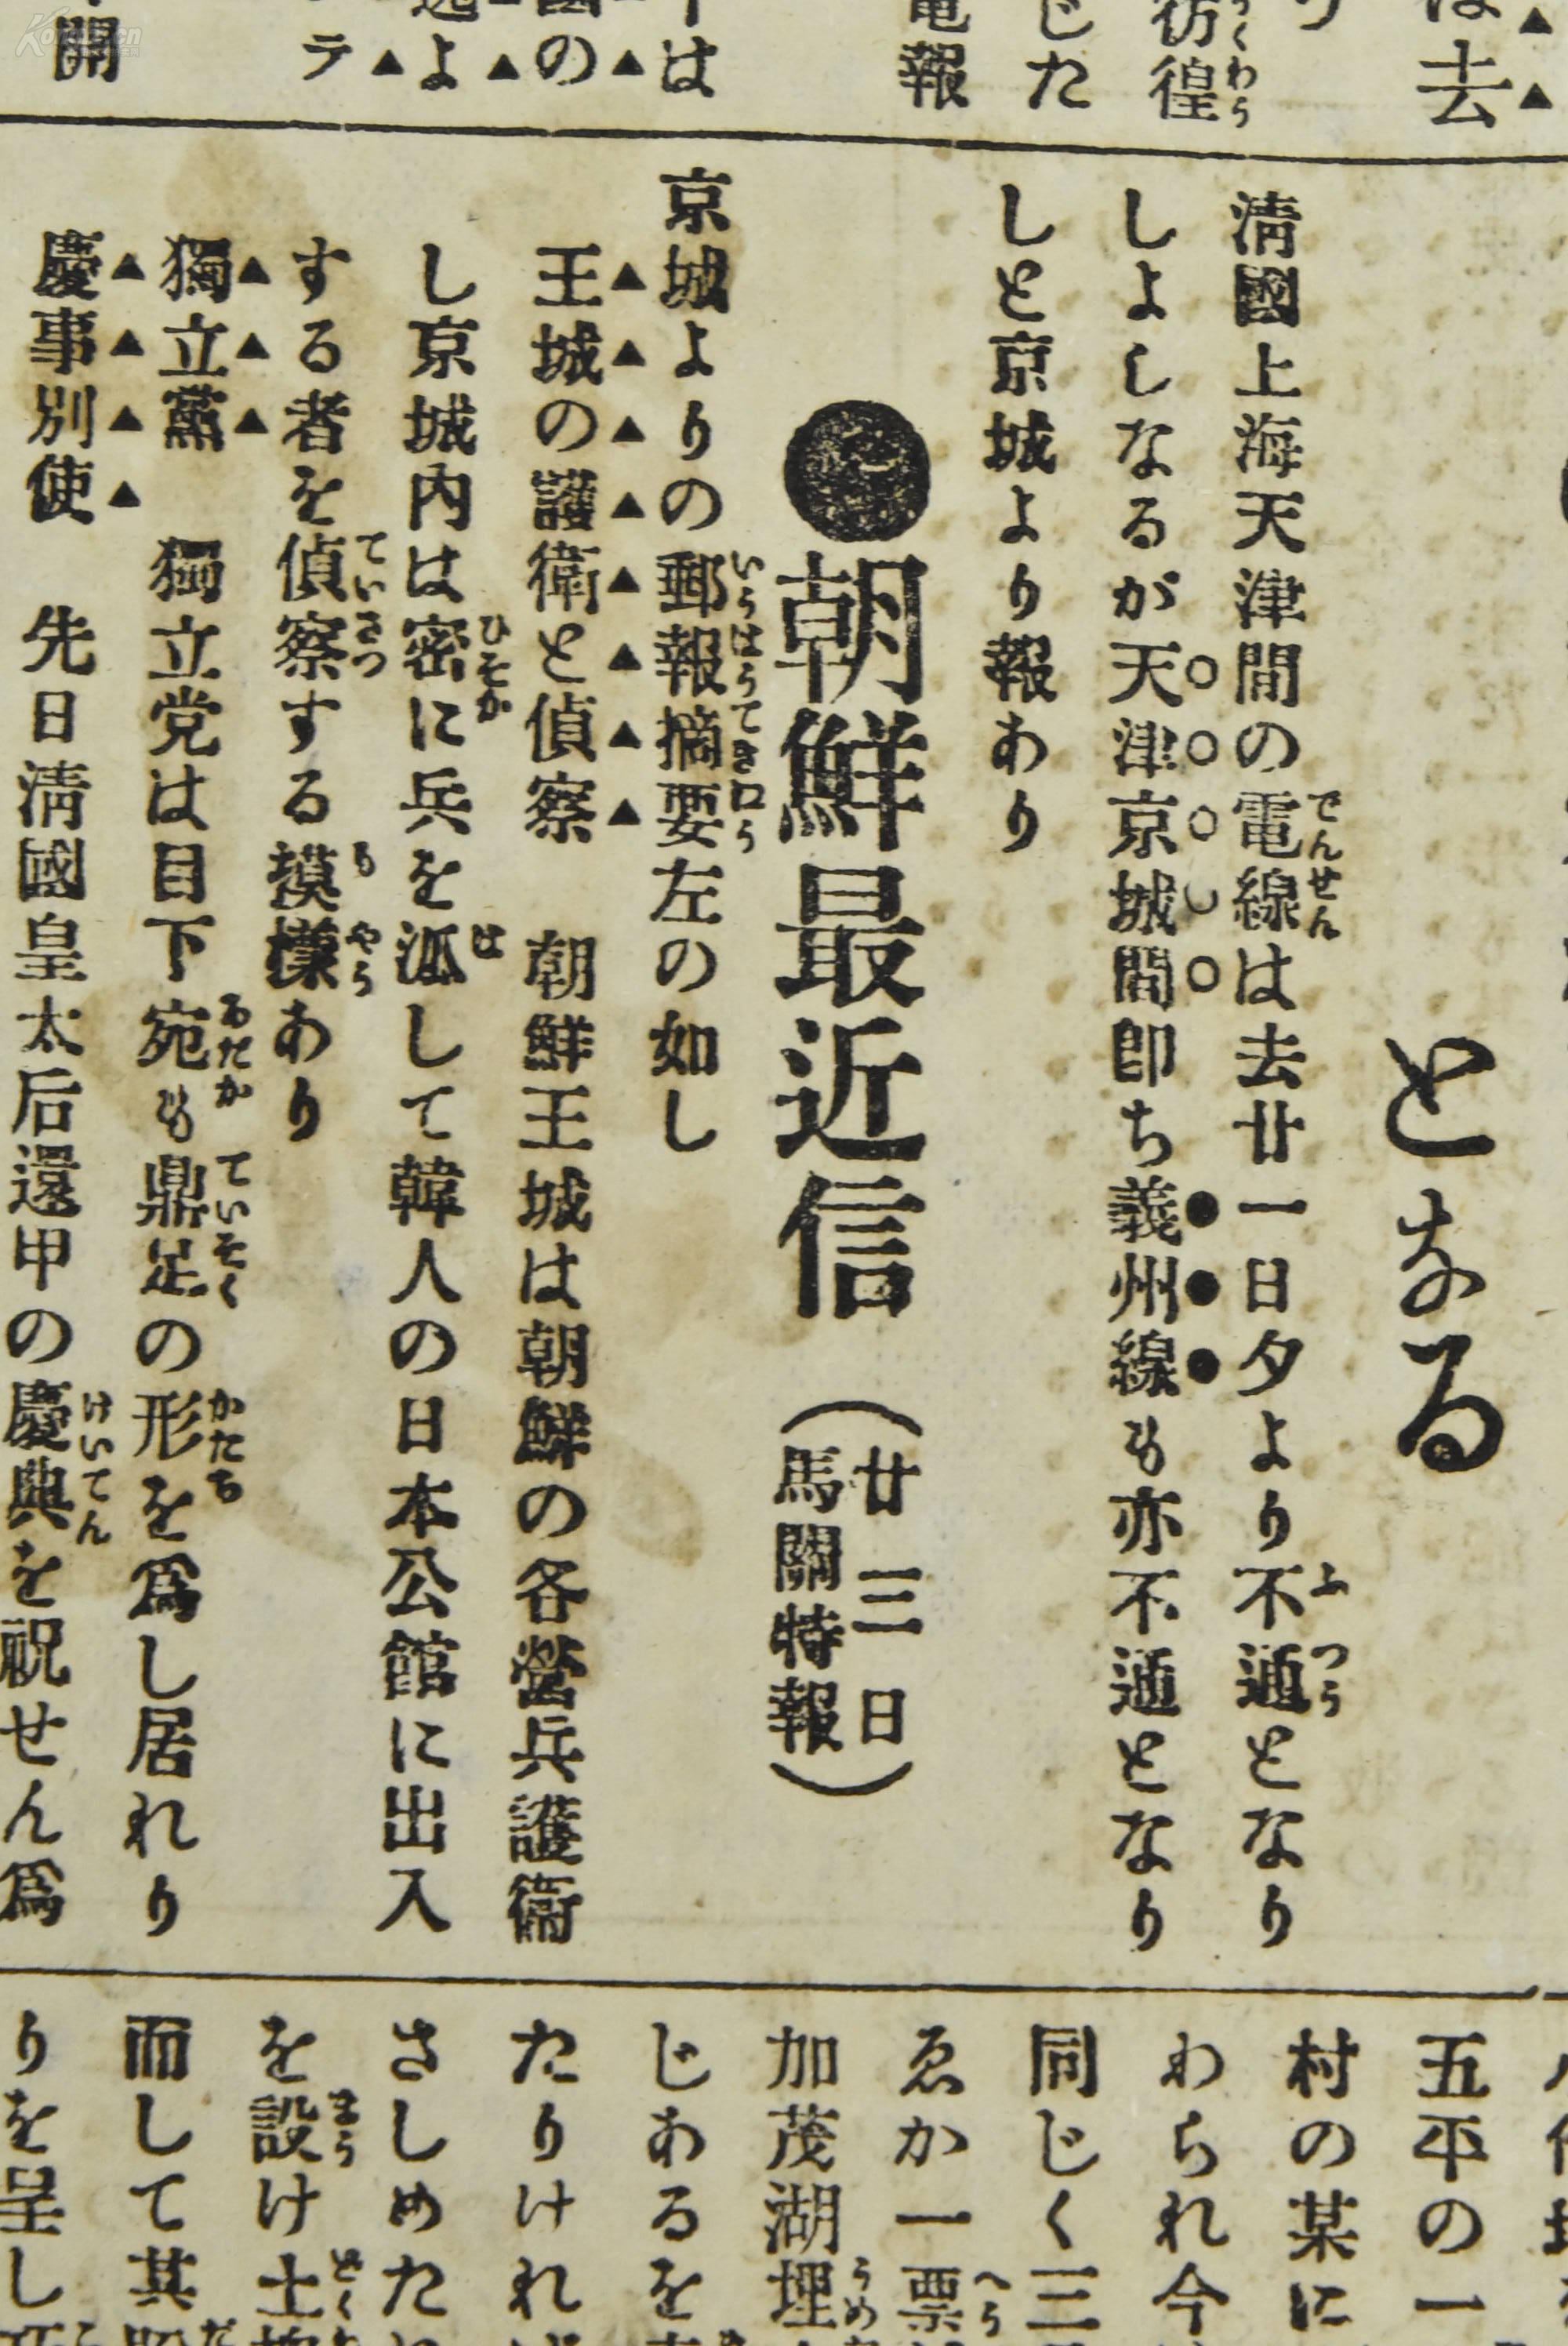 は去
彷徨
じた
電報
は
の
よ
テ
開
となる
清國上海天津間の電線は去廿一日夕より不通となり
しよしなるが天津京城間即ち義州線も亦不通となり
しと京城より報あり
●朝鮮最近信
(廿三日
馬關特報)
京城よりの郵報摘要左の如し
王城の護衛と偵察 朝鮮王城は朝鮮の各營兵護衛
し京城内は密に兵を派して韓人の日本公館に出入
する者を偵察する摸樣あり
獨立黨 獨立党は目下宛も鼎足の形を爲し居れり
慶事別使 先日清國皇太后還甲の慶典を祝せん爲
五平の一
村の某に
わちれ今
同じく三
ゑか一票
加茂湖埋
じあるを
たりけれ
さしめた
を設け土
而して其
りを呈し